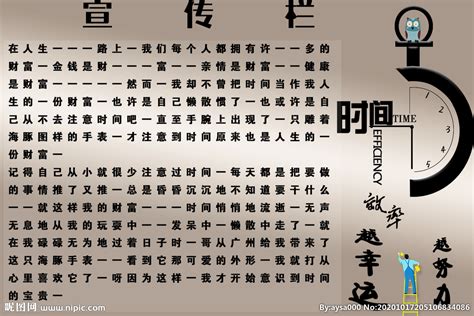 宣传栏
在人生一一一路上一我们每个人都拥有许一一多的
财富一金钱是财一一一一富一亲情是财富一健康
是财富一一一一然而一我却不曾把时间当作我人
生的一份财富一也许是自己懒散惯了一或许是自
己从不去注意时间吧一直至手腕上出现了戴着
海豚图样的手表一才注意到时间原来也是人生的一
份财富一
记得自己从小就很少注意过时间一每天都是把要做
的事情推了又推一总是昏昏沉沉地不知道要干什么
一一就这样我的财富一一一时间悄悄地流逝一悄无声
无息地从我的玩耍中一一发呆中一一睡梦中流走一就
在我碌碌无为地过着日子时一哥从广州给我带来了
这只海豚手表一一看到它一我就忍不住一一一我就打从
心里喜欢它了一呀因为这样一我才开始意识到时间
的宝贵一
时间
TIME
EFFICIENCY
效率
越幸运
越努力
1
2
3
4
5
昵图网 www.nipic.com
By:aysa000 No:20201017205106834086